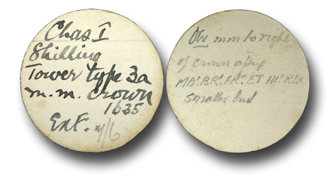 Chas I
Shilling
Tower type 3a
m.m. crown
1635
Obv mm to right
of crown apex
MAG: BR: FR: ET HI: REX
smaller bust